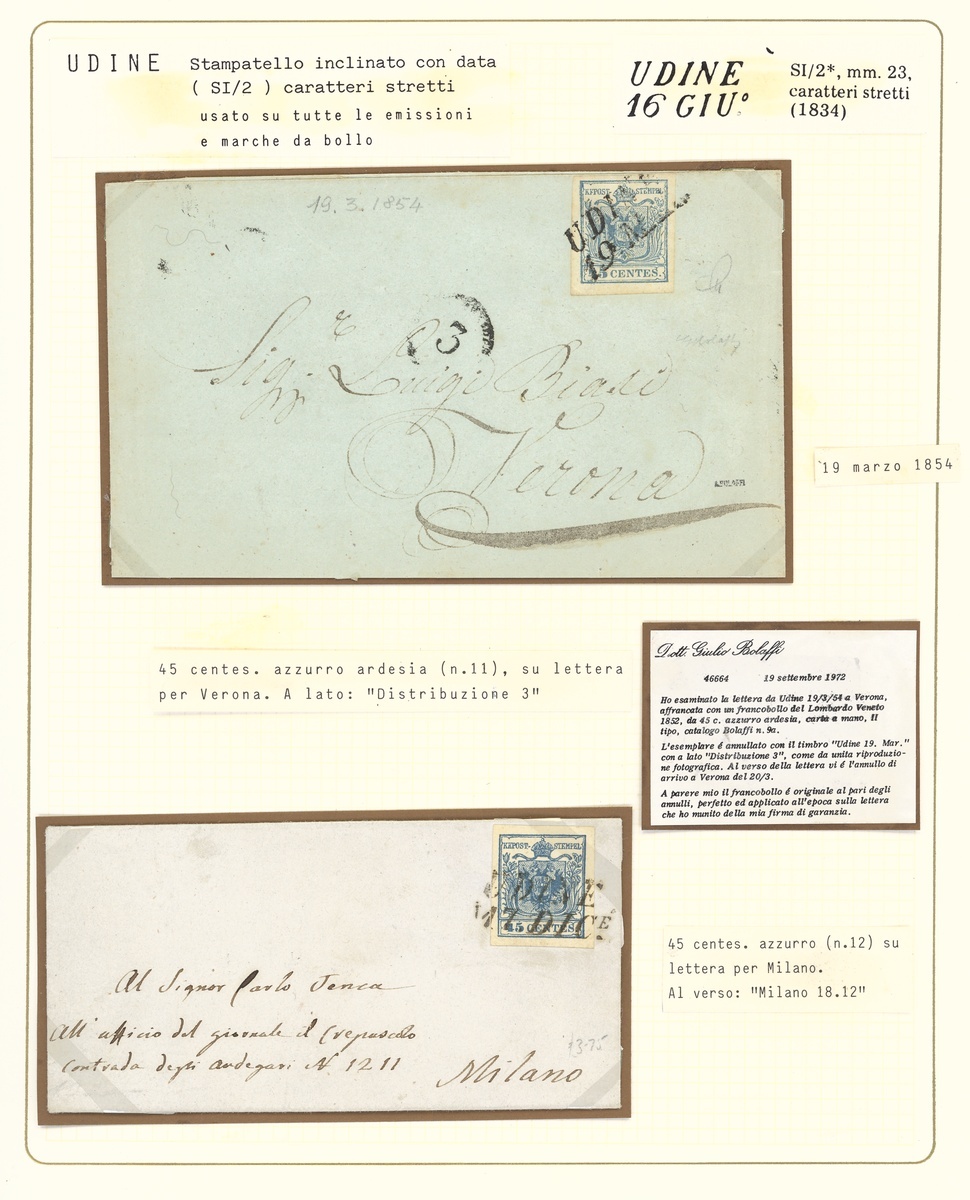 UDINE Stampatello inclinato con data
( SI/2 ) caratteri stretti
usato su tutte le emissioni
e marche da bollo
UDINE
16 GIUº
SI/2*, mm. 23,
caratteri stretti
(1834)
19. 3. 1854
KKPOST-STEMPEL
UDINE
19 M
45 CENTES.
3
Sig.r Luigi Biasi
Verona
A.BOLAFFI
19 marzo 1854
45 centes. azzurro ardesia (n.11), su lettera
per Verona. A lato: "Distribuzione 3"
Dott. Giulio Bolaffi
46664 19 settembre 1972
Ho esaminato la lettera da Udine 19/3/54 a Verona,
affrancata con un francobollo del Lombardo Veneto
1852, da 45 c. azzurro ardesia, carta a mano, II
tipo, catalogo Bolaffi n. 9a.
L'esemplare é annullato con il timbro "Udine 19. Mar."
con a lato "Distribuzione 3", come da unita riproduzio-
ne fotografica. Al verso della lettera vi é l'annullo di
arrivo a Verona del 20/3.
A parere mio il francobollo é originale al pari degli
annulli, perfetto ed applicato all'epoca sulla lettera
che ho munito della mia firma di garanzia.
KKPOST-STEMPEL
UDINE
17 DICE.
45 CENTES.
Al Signor Carlo Tenca
All' ufficio del giornale il Crepuscolo
contrada degli andegari N. 1211
Milano
45 centes. azzurro (n.12) su
lettera per Milano.
Al verso: "Milano 18.12"